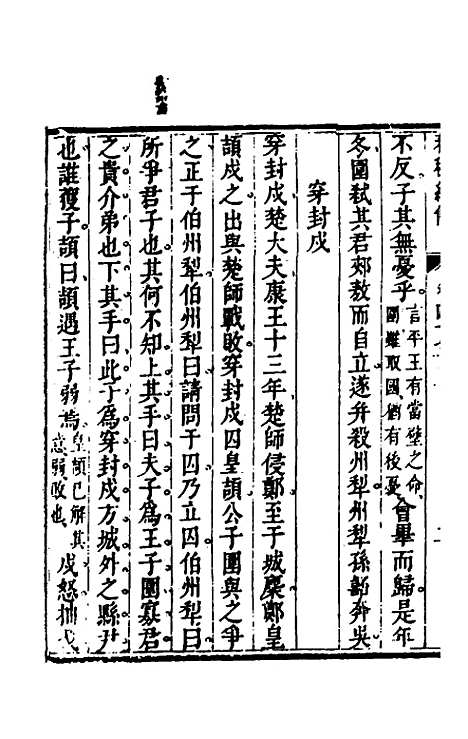 不反子其無憂乎言平王有當璧之命圍雖取國猶有後憂會畢而歸是年
冬圍弑其君郟敖而自立遂并殺州犁州犁孫嚭奔吳
穿封戌
穿封戌楚大夫康王十三年楚師侵鄭至于城麇鄭皇
頡戍之出與楚師戰敗穿封戌囚皇頡公子圍與之爭
之正于伯州犁伯州犁曰請問于囚乃立囚伯州犁曰
所爭君子也其何不知上其手曰夫子為王子圍寡君
之貴介弟也下其手曰此子為穿封戌方城外之縣尹
也誰獲子頡曰頡遇王子弱焉皇頡已解其意弱敗也戌怒抽戈